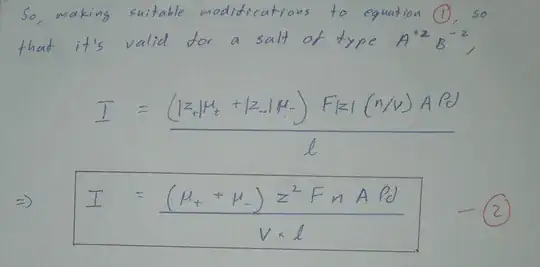 So, making suitable modifications to equation ①, so
that it's valid for a salt of type A⁺ᶻ B⁻ᶻ,
I = (|z₊|μ₊ + |z₋|μ₋) F|z| (n/v) A Pd / l
⇒ I = (μ₊ + μ₋) z² F n A Pd / V × l — ②